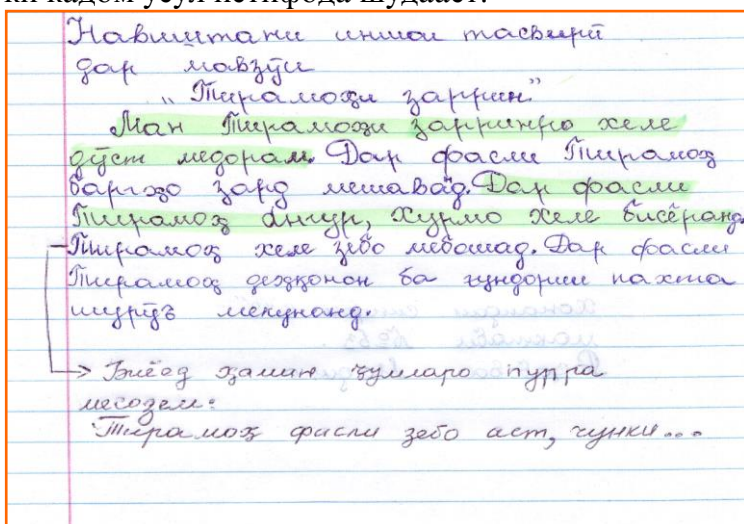 ки кадом усул истифода шудааст.
Навиштани иншои тасвирӣ
дар мавзӯи
„Тирамоҳи заррин”
Ман Тирамоҳи зарринро хеле
дӯст медорам. Дар фасли Тирамоҳ
баргҳо зард мешавад. Дар фасли
Тирамоҳ ангур, хурмо хеле бисёранд.
Тирамоҳ хеле зебо мебошад. Дар фасли
Тирамоҳ деҳқонон ба ғундории пахта
шурӯъ мекунанд.
Биёед ҳамин ҷумларо пурра
месозем:
Тирамоҳ фасли зебо аст, чунки...